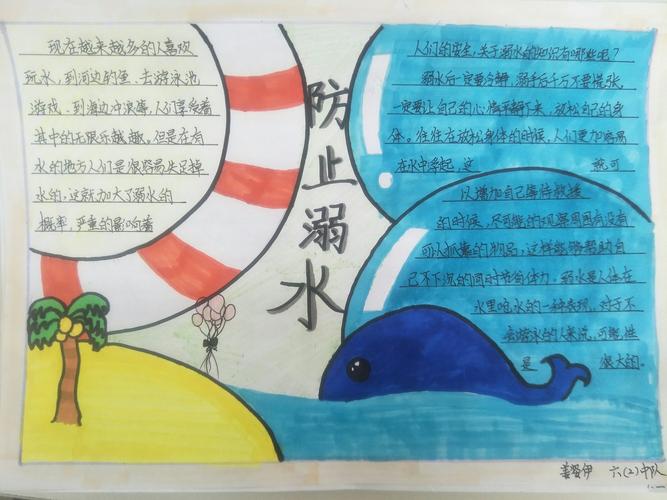 现在越来越多的人喜欢
玩水，到河边钓鱼、去游泳池
游戏、到海边冲浪等，人们享受着
其中的无限乐越趣。但是在有
水的地方人们是很容易失足掉
水的，这就加大了溺水的
概率，严重的影响着
防止溺水
人们的安全，关于溺水的知识有哪些呢？
溺水后一定要冷静，溺手后千万不要慌张，
一定要让自己的心情平静下来，放松自己的身
体。往往在放松身体的时候，人们更加容易
在水中浮起，这 就可
以增加自己等待救援
的时候，尽可能的观察周围有没有
可以抓靠的物品，这样能够帮助自
己不下沉的同时节省体力，溺水是人体在
水里呛水的一种表现，对于不
会游泳的人来说，可能性
是 很大的。
六(2)中队